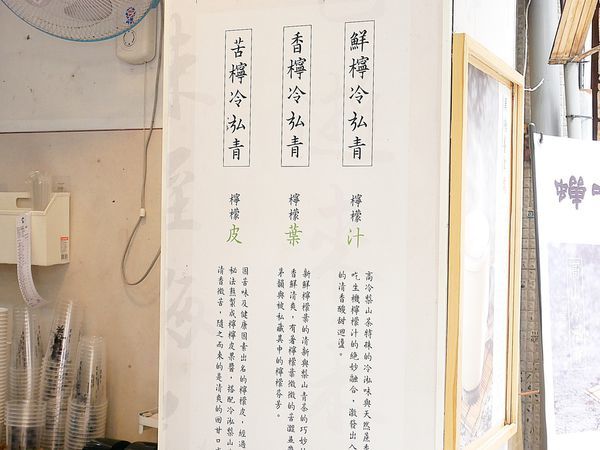 鮮檸冷泓青
檸檬
汁
高冷梨山茶特殊的冷泓味與天然蔗
吃生機檸檬汁的絕妙融合，激發出
的清香酸甜迴盪。
香檸冷泓青
檸檬
葉
新鮮檸檬葉的清新與梨山青茶的巧妙
香鮮清爽，有著檸檬葉微微的苦澀並
茅韻與被私藏其中的檸檬芬芳。
苦檸冷泓青
檸檬
皮
因苦味及健康因素出名的檸檬皮，經
秘法熬製成檸檬皮果醬，搭配冷泓梨山
清香微苦，隨之而來的是清爽的回甘口